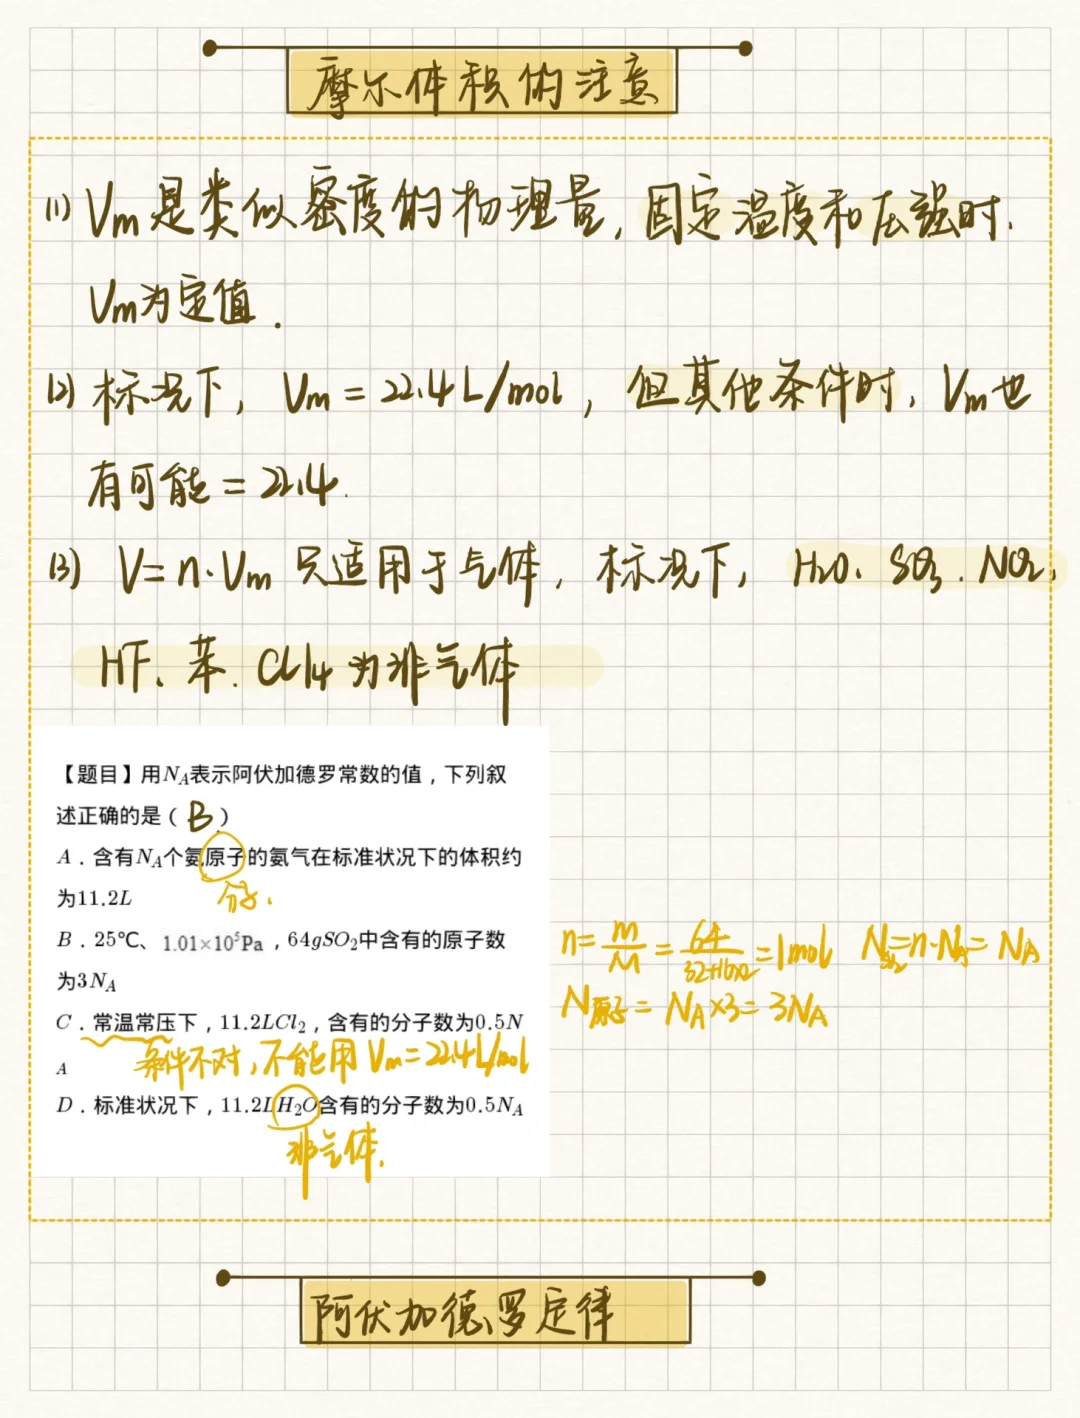 摩尔体积的注意
(1) Vm是类似密度的物理量,固定温度和压强时.
Vm为定值.
(2) 标况下, Vm = 22.4 L/mol, 但其他条件时, Vm也
有可能 = 22.4.
(3) V=n·Vm 只适用于气体, 标况下, H₂O、SO₃、NO₂、
HF、苯、CCl₄ 为非气体
【题目】用N_A表示阿伏加德罗常数的值,下列叙
述正确的是( B )
A.含有N_A个氨原子的氨气在标准状况下的体积约
分子.
为11.2L
B.25℃、1.01×10⁵Pa,64gSO₂中含有的原子数
为3N_A
n= m/M = 64/(32+16×2) =1mol N_SO₂=n·N_A= N_A
N原子= N_A×3= 3N_A
C.常温常压下,11.2LCl₂,含有的分子数为0.5N
A
条件不对,不能用 Vm=22.4L/mol
D.标准状况下,11.2LH₂O含有的分子数为0.5N_A
非气体.
阿伏加德罗定律